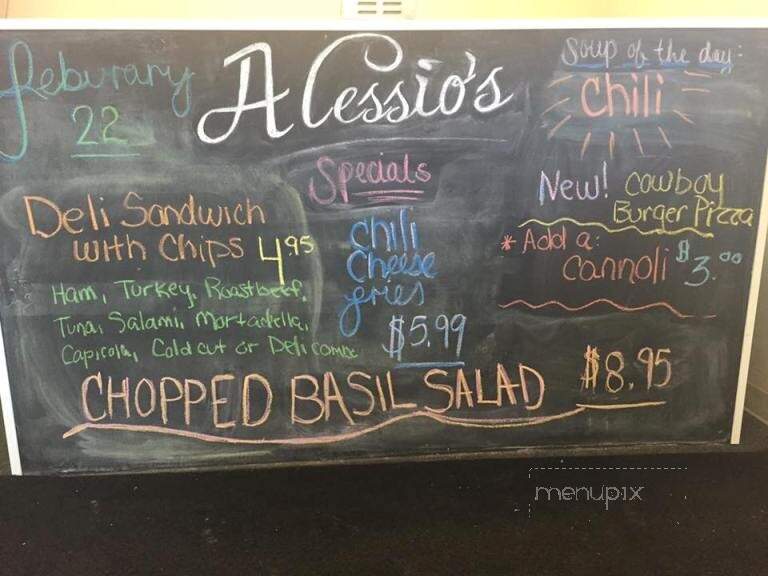 Feburary
22
Alessio's
Soup of the day:
chili
Specials
New! Cowboy
Burger Pizza
Deli Sandwich
with Chips 4.95
Ham, Turkey, Roastbeef,
Tuna, Salami, Mortadella,
Capicolla, Cold cut or Deli
Chili
Cheese
fries
$5.99
* Add a:
Cannoli $3.00
CHOPPED BASIL SALAD $8.95
menupix